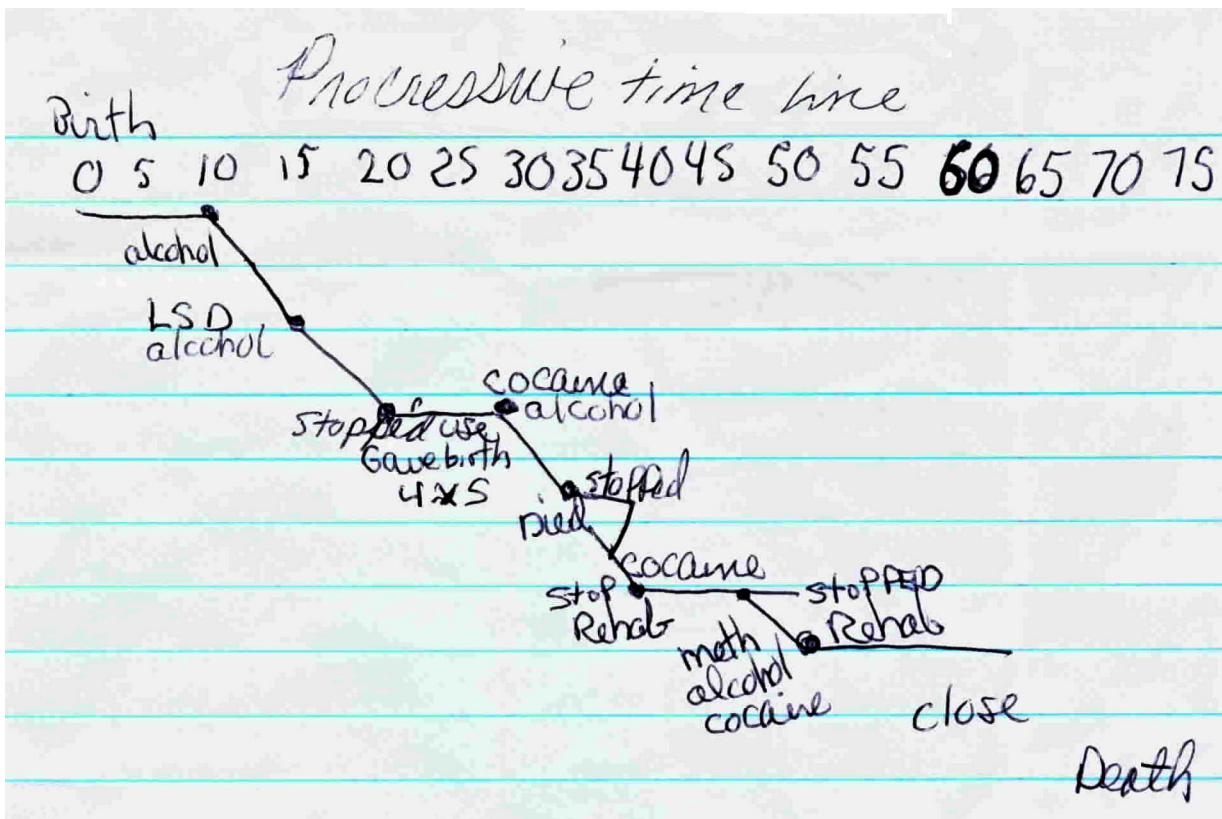 Progressive time line
Birth
0 5 10 15 20 25 30 35 40 45 50 55 60 65 70 75
alcohol
LSD
alcohol
cocaine
alcohol
stopped use
Gave birth
4 x 5
stopped
Died
cocaine
stop
Rehab
stopped
Rehab
meth
alcohol
cocaine
close
Death